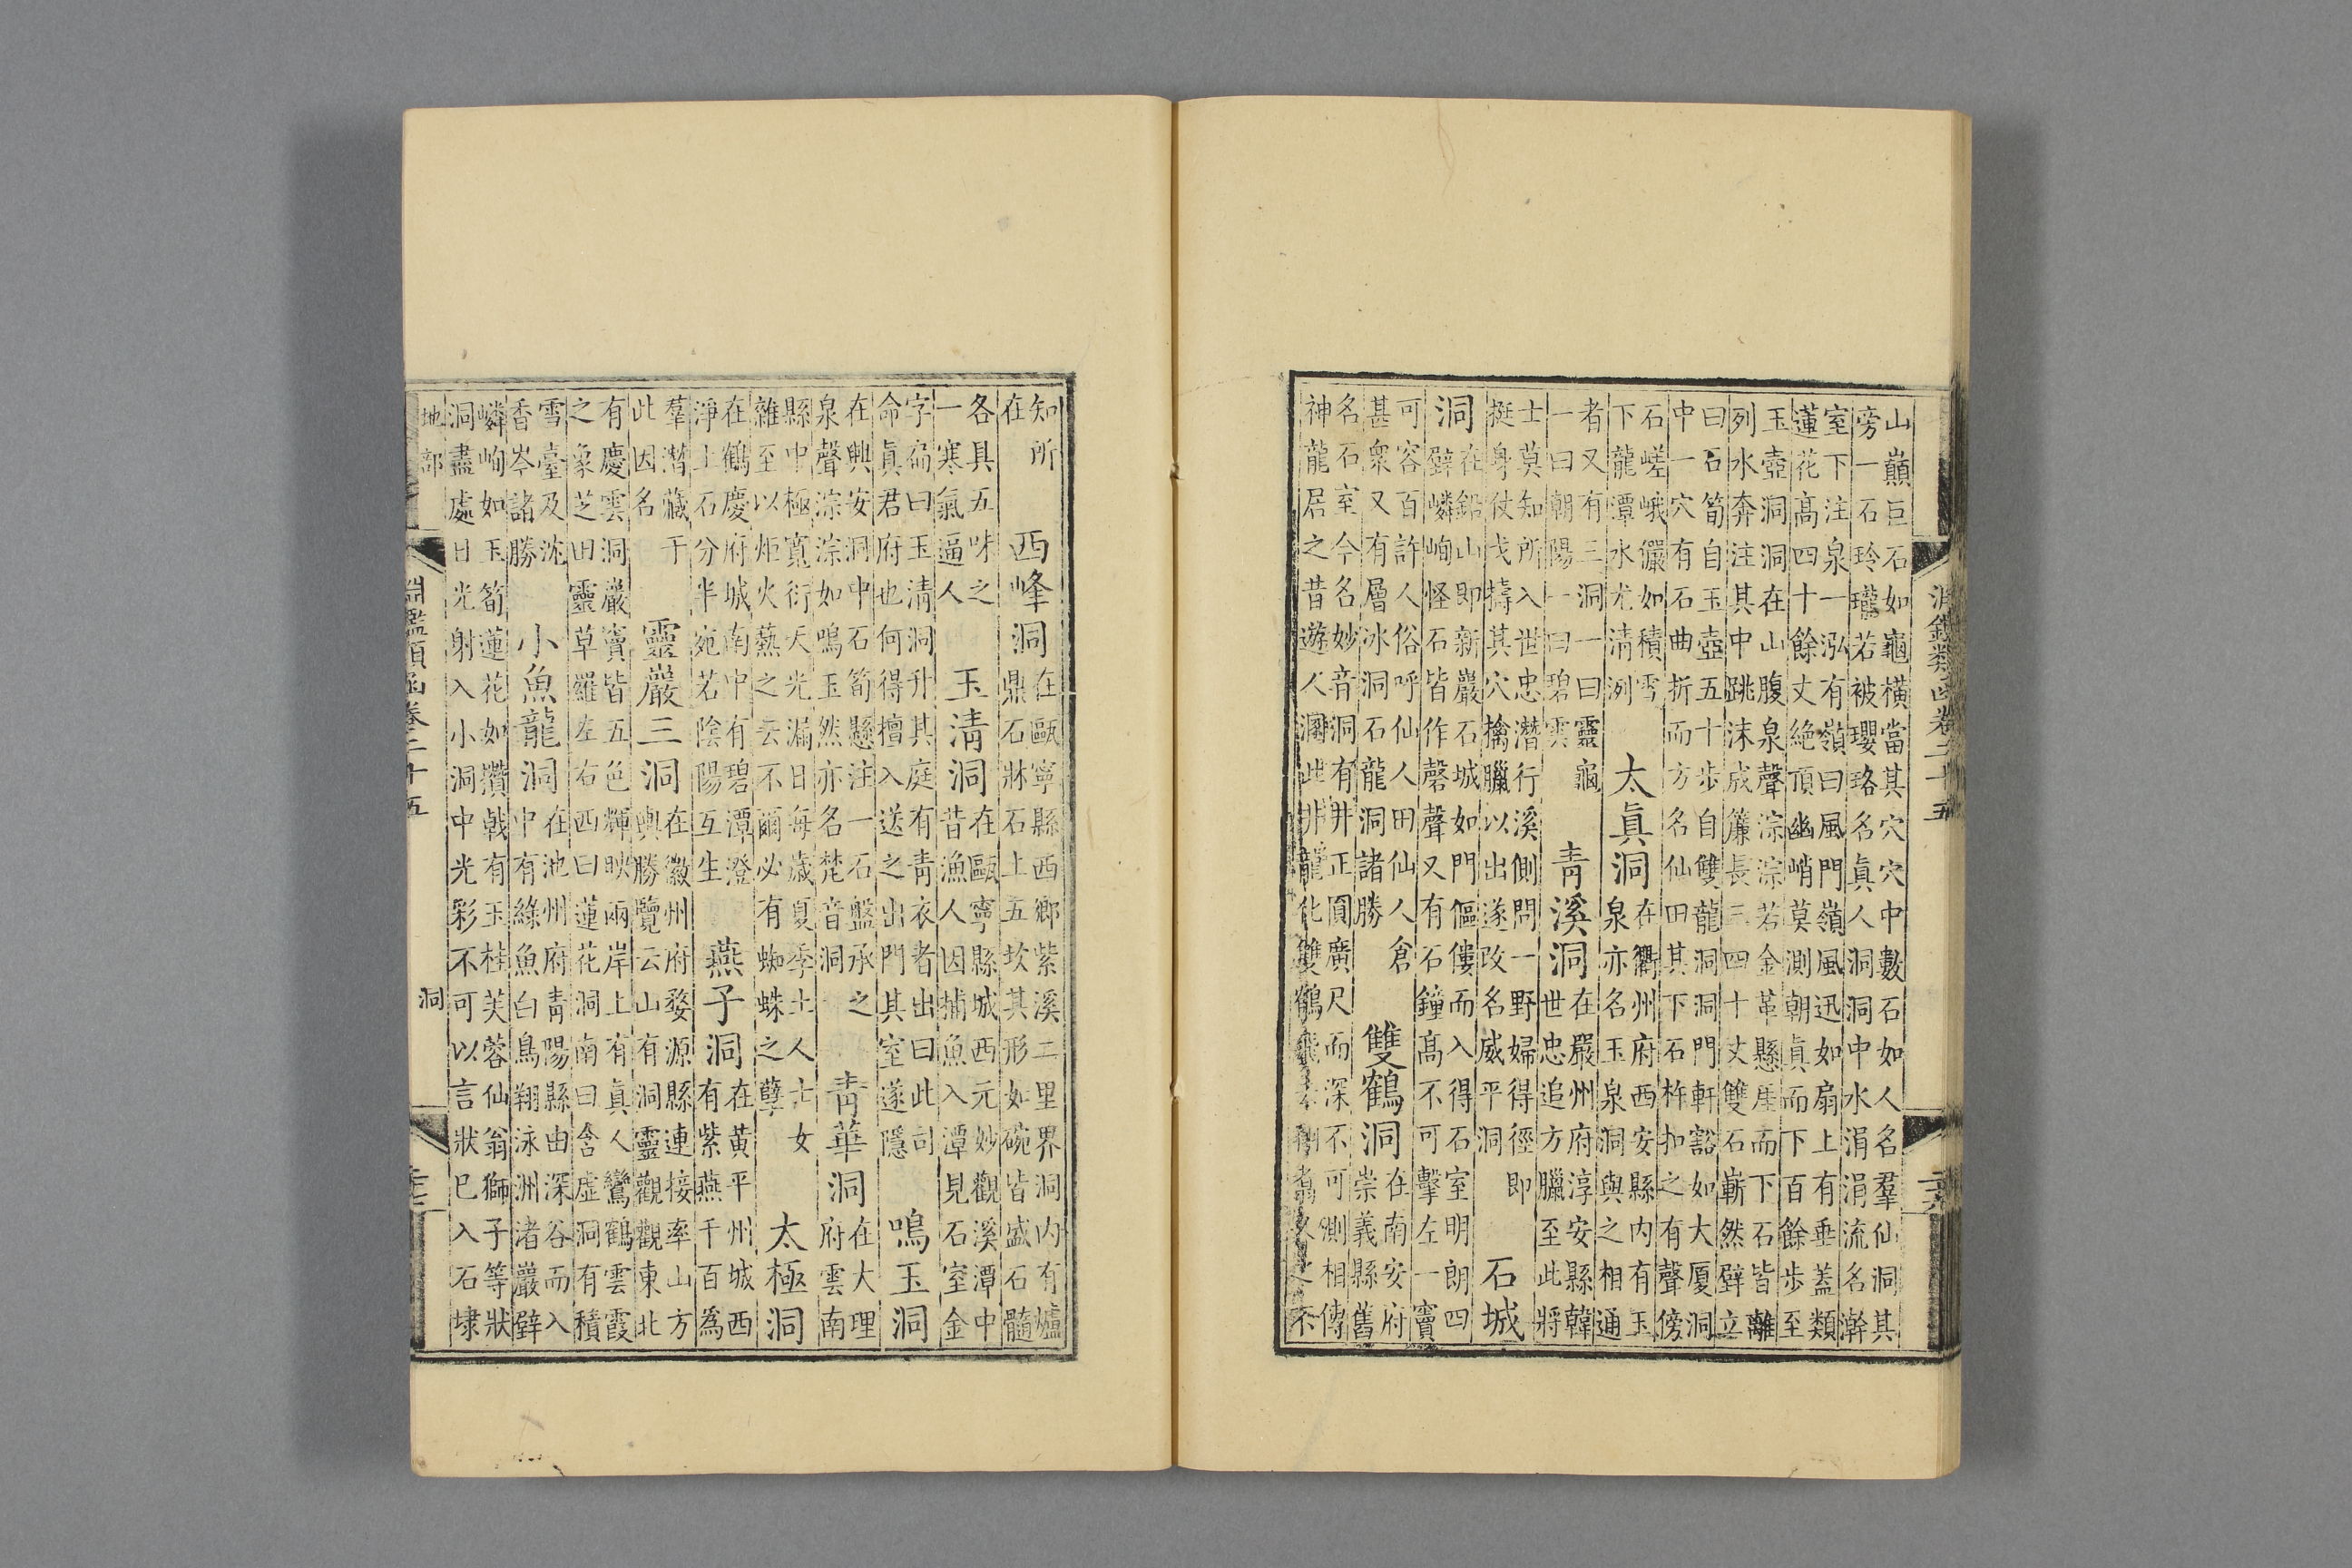 淵鑑類函卷二十五
二六
山巓巨石如龜橫當其穴穴中數石如人名羣仙洞其
旁一石玲瓏若被瓔珞名眞人洞洞中水涓涓流名澣
室下注泉一泓有嶺曰風門嶺風迅如扇上有垂蓋類
蓮花高四十餘丈絶頂幽峭莫測朝眞而下百餘步至
玉壺洞洞在山腹泉聲淙淙若金革懸崖而下石皆離
列水奔注其中跳沫成簾長三四十丈雙石嶄然壁立
曰石筍自玉壺五十步自雙龍洞洞門軒豁如大厦洞
中一穴有石曲折而方名仙田其下石杵扣之有聲傍
石嵯峨儼如積雪
下龍潭水尤清洌
太眞洞
在衢州府西安縣内有玉
泉亦名玉泉洞與之相通
者又有三洞一曰靈龜
一曰朝陽一曰碧雲
青溪洞
在嚴州府淳安縣韓
世忠追方臘至此將
士莫知所入世忠潛行溪側問一野婦得徑即
挺身仗戈擣其穴擒臘以出遂改名威平洞
石城
洞
在鉛山即新巖石城如門傴僂而入得石室明朗四
壁嶙峋怪石皆作磬聲又有石鐘高不可擊左一竇
可容百許人俗呼仙人田仙人倉
甚衆又有層冰洞石龍洞諸勝
雙鶴洞
在南安府
崇義縣舊
名石室今名妙音洞有井正圓廣尺而深不可測相傳
神龍居之昔遊人溷此井龍化雙鶴久之不
知所
在
西峰洞
在甌寧縣西鄉紫溪二里界洞内有爐
鼎石牀石上五坎其形如碗皆盛石髓
各具五味之
一寒氣逼人
玉清洞
在甌寧縣城西元妙觀溪潭中
昔漁人因捕魚入潭見石室金
字扁曰玉清洞升其庭有青衣者出曰此司
命眞君府也何得擅入送之出門其室遂隱
鳴玉洞
在興安洞中石筍懸注一石盤承之
泉聲淙淙如鳴玉然亦名梵音洞
青華洞
在大理
府雲南
縣中極寬衍天光漏日每歲夏季土人士女
雜至以炬火爇之云不爾必有蜘蛛之孽
太極洞
在鶴慶府城南中有碧潭澄
淨上石分半宛若陰陽互生
燕子洞
在黃平州城西
有紫燕千百爲
羣潛藏于
此因名
靈巖三洞
在徽州府婺源縣連接率山方
輿勝覽云山有洞靈觀觀東北
有慶雲洞巖竇皆五色輝映兩岸上有眞人鸞鶴雲霞
之象芝田靈草羅左右西曰蓮花洞南曰含虛洞有積
雪臺及沈
香岑諸勝
小魚龍洞
在池州府青陽縣由深谷而入
中有綠魚白鳥翔泳洲渚巖壁
嶙峋如玉筍蓮花如攢戟有玉柱芙蓉仙翁獅子等狀
洞盡處日光射入小洞中光彩不可以言狀巳入石埭
地部
洞
淵鑑類函卷二十五